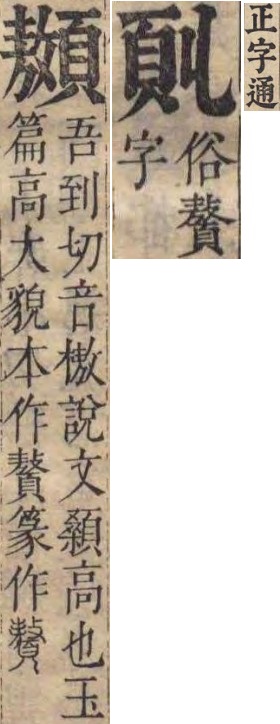 正字通
俗贅
字
䫨
吾到切音說文顤高也玉
篇高大貌本作贅篆作